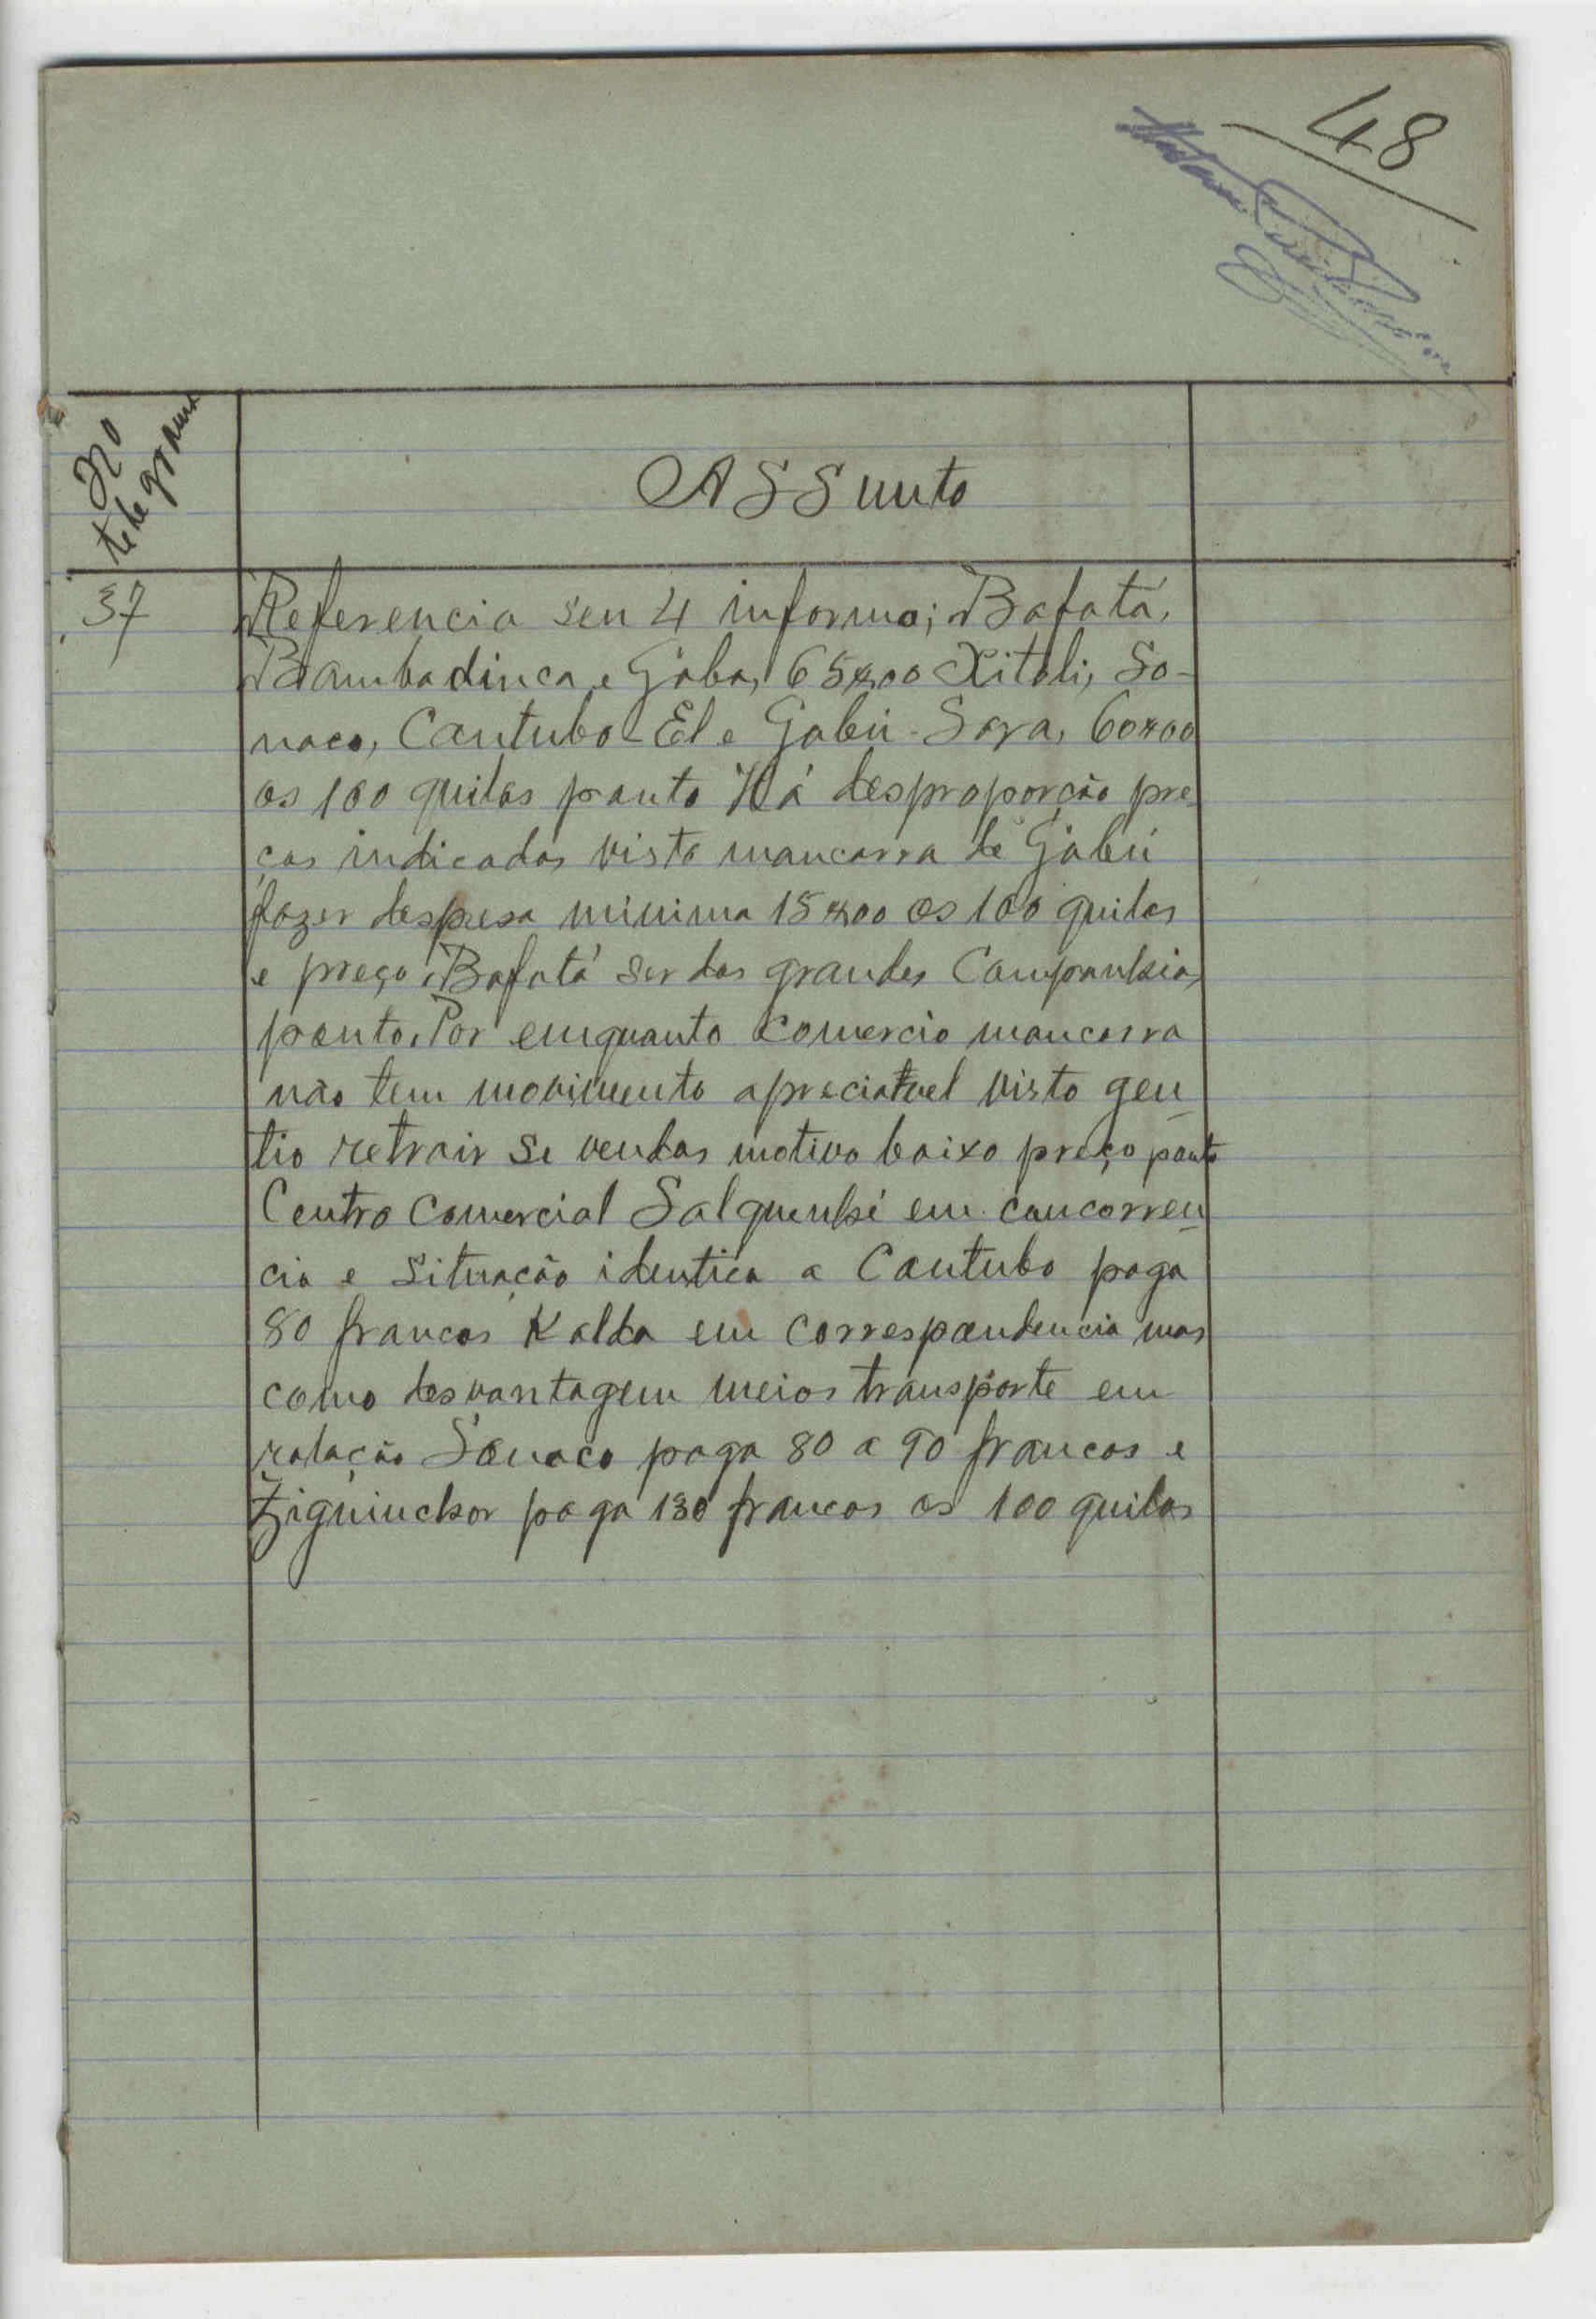 48
No
telegrama
Assunto
37
Referencia seu 4 informo; Bafatá,
Bambadinca e Gaba, 65$00 Xitoli, So-
naco, Cantubo-El e Gabú-Sara, 60$00
os 100 quilos ponto Há desproporção pre
ços indicados visto mancarra de Gabú
fazer despesa minima 15$00 os 100 quilos
e preço Bafatá ser das grandes Companhias
ponto. Por emquanto comercio mancarra
não tem movimento apreciavel visto gen
tio retrair se vendas motivo baixo preço ponto
Centro Comercial Salquenhé em concorren
cia e situação identica a Cantubo paga
80 francos Kolda em correspondencia mas
como desvantagem meios transporte em
relação Sonaco paga 80 a 90 francos e
Ziguinchor paga 130 francos os 100 quilos